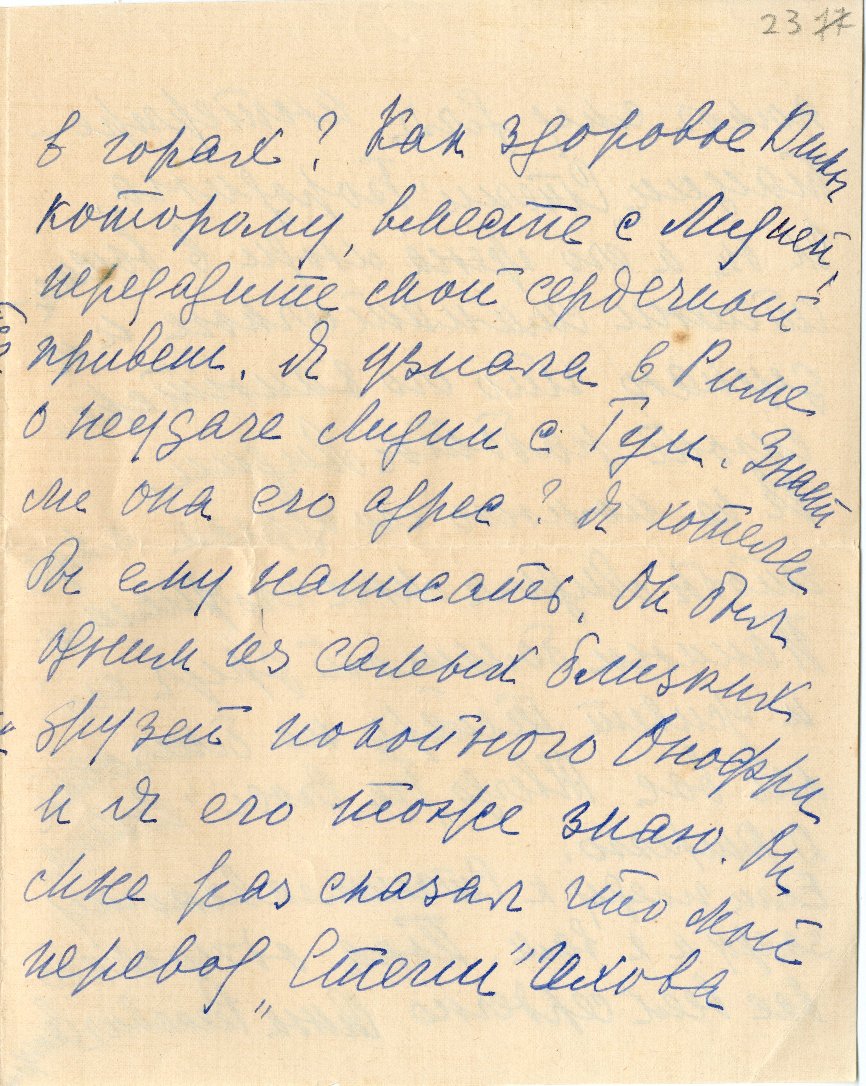 23 17
в горах? Как здоровье Димы
которому, вместе с Лидией,
передадите мой сердечный
привет. Я узнала в Риме
о неудаче Лидии с Гуи. Знает
ли она его адрес? Я хотела
бы ему написать. Он был
одним из самых близких
друзей покойного Онофри
и я его тоже знаю. Он
мне раз сказал что мой
перевод „Степи" Чехова